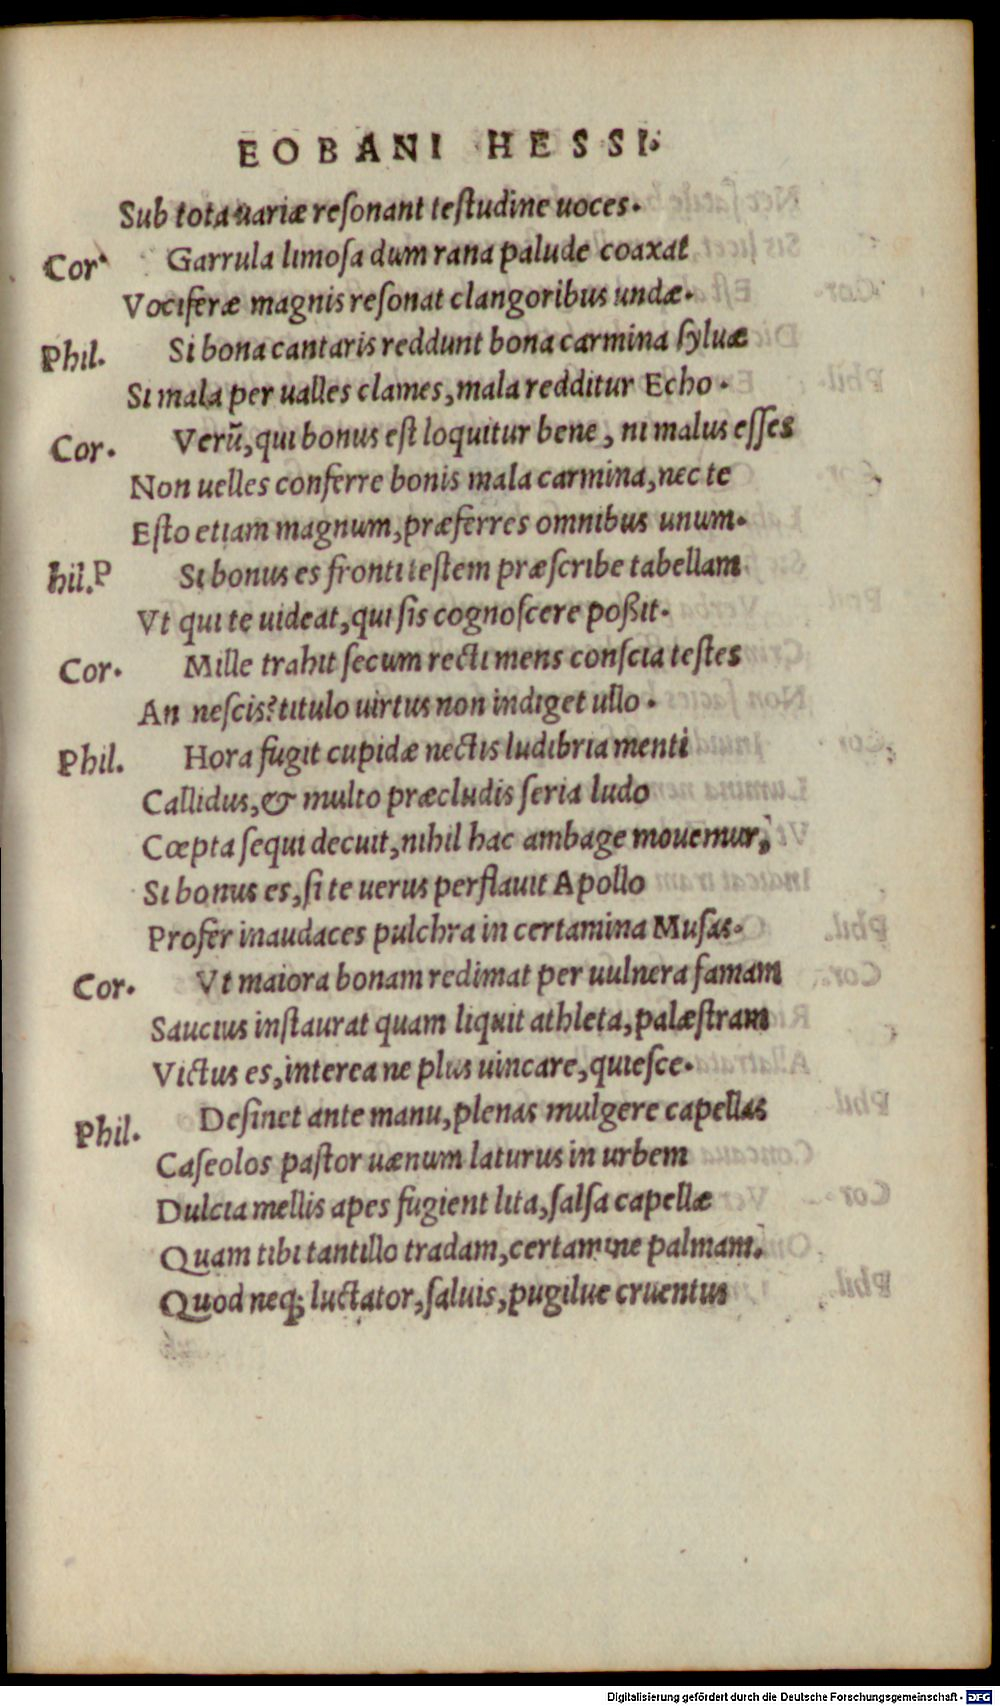 EOBANI HESSI.
Sub tota uariæ reſonant teſtudine uoces.
Cor. Garrula limoſa dum rana palude coaxat
Vociferæ magnis reſonat clangoribus undæ.
Phil. Si bona cantaris reddunt bona carmina ſyluæ
Si mala per ualles clames, mala redditur Echo.
Cor. Verũ, qui bonus eſt loquitur bene, ni malus eſſes
Non uelles conferre bonis mala carmina, nec te
Eſto etiam magnum, præferres omnibus unum.
hil.P Si bonus es fronti teſtem præſcribe tabellam
Vt qui te uideat, qui ſis cognoſcere poßit.
Cor. Mille trahit ſecum recti mens conſcia teſtes
An neſcis? titulo uirtus non indiget ullo.
Phil. Hora fugit cupidæ nectis ludibria menti
Callidus, & multo præcludis ſeria ludo
Cœpta ſequi decuit, nihil hac ambage mouemur,
Si bonus es, ſi te uerus perflauit Apollo
Profer in audaces pulchra in certamina Muſas.
Cor. Vt maiora bonam redimat per uulnera famam
Saucius inſtaurat quam liquit athleta, palæſtram
Victus es, interea ne plus uincare, quieſce.
Phil. Deſinet ante manu, plenas mulgere capellas
Caſeolos paſtor uænum laturus in urbem
Dulcia mellis apes fugient lita, ſalſa capellæ
Quam tibi tantillo tradam, certamine palmam.
Quod neq; luctator, ſaluis, pugilue cruentus
Digitalisierung gefördert durch die Deutsche Forschungsgemeinschaft - DFG